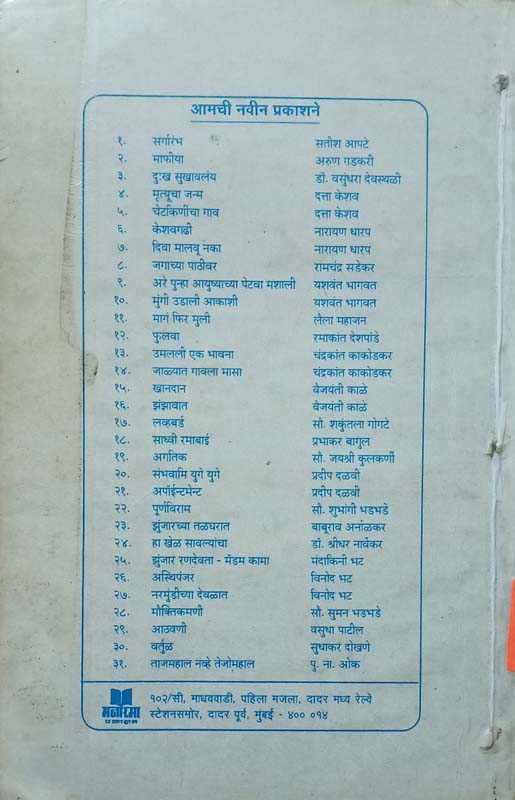 आमची नवीन प्रकाशने
१. सर्गारंभ सतीश आपटे
२. माफीया अरुण गडकरी
३. दुःख सुखावलंय डॉ. वसुंधरा देवस्थळी
४. मृत्यूचा जन्म दत्ता केशव
५. चेटकिणींचा गाव दत्ता केशव
६. केशवगढी नारायण धारप
७. दिवा मालवू नका नारायण धारप
८. जगाच्या पाठीवर रामचंद्र सडेकर
९. अरे पुन्हा आयुष्याच्या पेटवा मशाली यशवंत भागवत
१०. मुंगी उडाली आकाशी यशवंत भागवत
११. मागं फिर मुली लैला महाजन
१२. फुलवा रमाकांत देशपांडे
१३. उमलली एक भावना चंद्रकांत काकोडकर
१४. जाळ्यात गावला मासा चंद्रकांत काकोडकर
१५. खानदान वैजयंती काळे
१६. झंझावात वैजयंती काळे
१७. लव्हबर्ड सौ. शकुंतला गोगटे
१८. साध्वी रमाबाई प्रभाकर बागुल
१९. अगतिक सौ. जयश्री कुलकर्णी
२०. संभवामि युगे युगे प्रदीप दळवी
२१. अपॉईन्टमेन्ट प्रदीप दळवी
२२. पूर्णविराम सौ. शुभांगी भडभडे
२३. झुंजारच्या तळघरात बाबूराव अर्नाळकर
२४. हा खेळ सावल्यांचा डॉ. श्रीधर नार्वेकर
२५. झुंजार रणदेवता - मॅडम कामा मंदाकिनी भट
२६. अस्थिपंजर विनोद भट
२७. नरमुंडीच्या देवळात विनोद भट
२८. मौक्तिकमणी सौ. सुमन भडभडे
२९. आठवणी वसुधा पाटील
३०. वर्तुळ सुधाकर दोखणे
३१. ताजमहाल नव्हे तेजोमहाल पु. ना. ओक
मनोरमा
प्रकाशन
१०२/सी, माधववाडी, पहिला मजला, दादर मध्य रेल्वे
स्टेशनसमोर, दादर पूर्व, मुंबई - ४०० ०१४